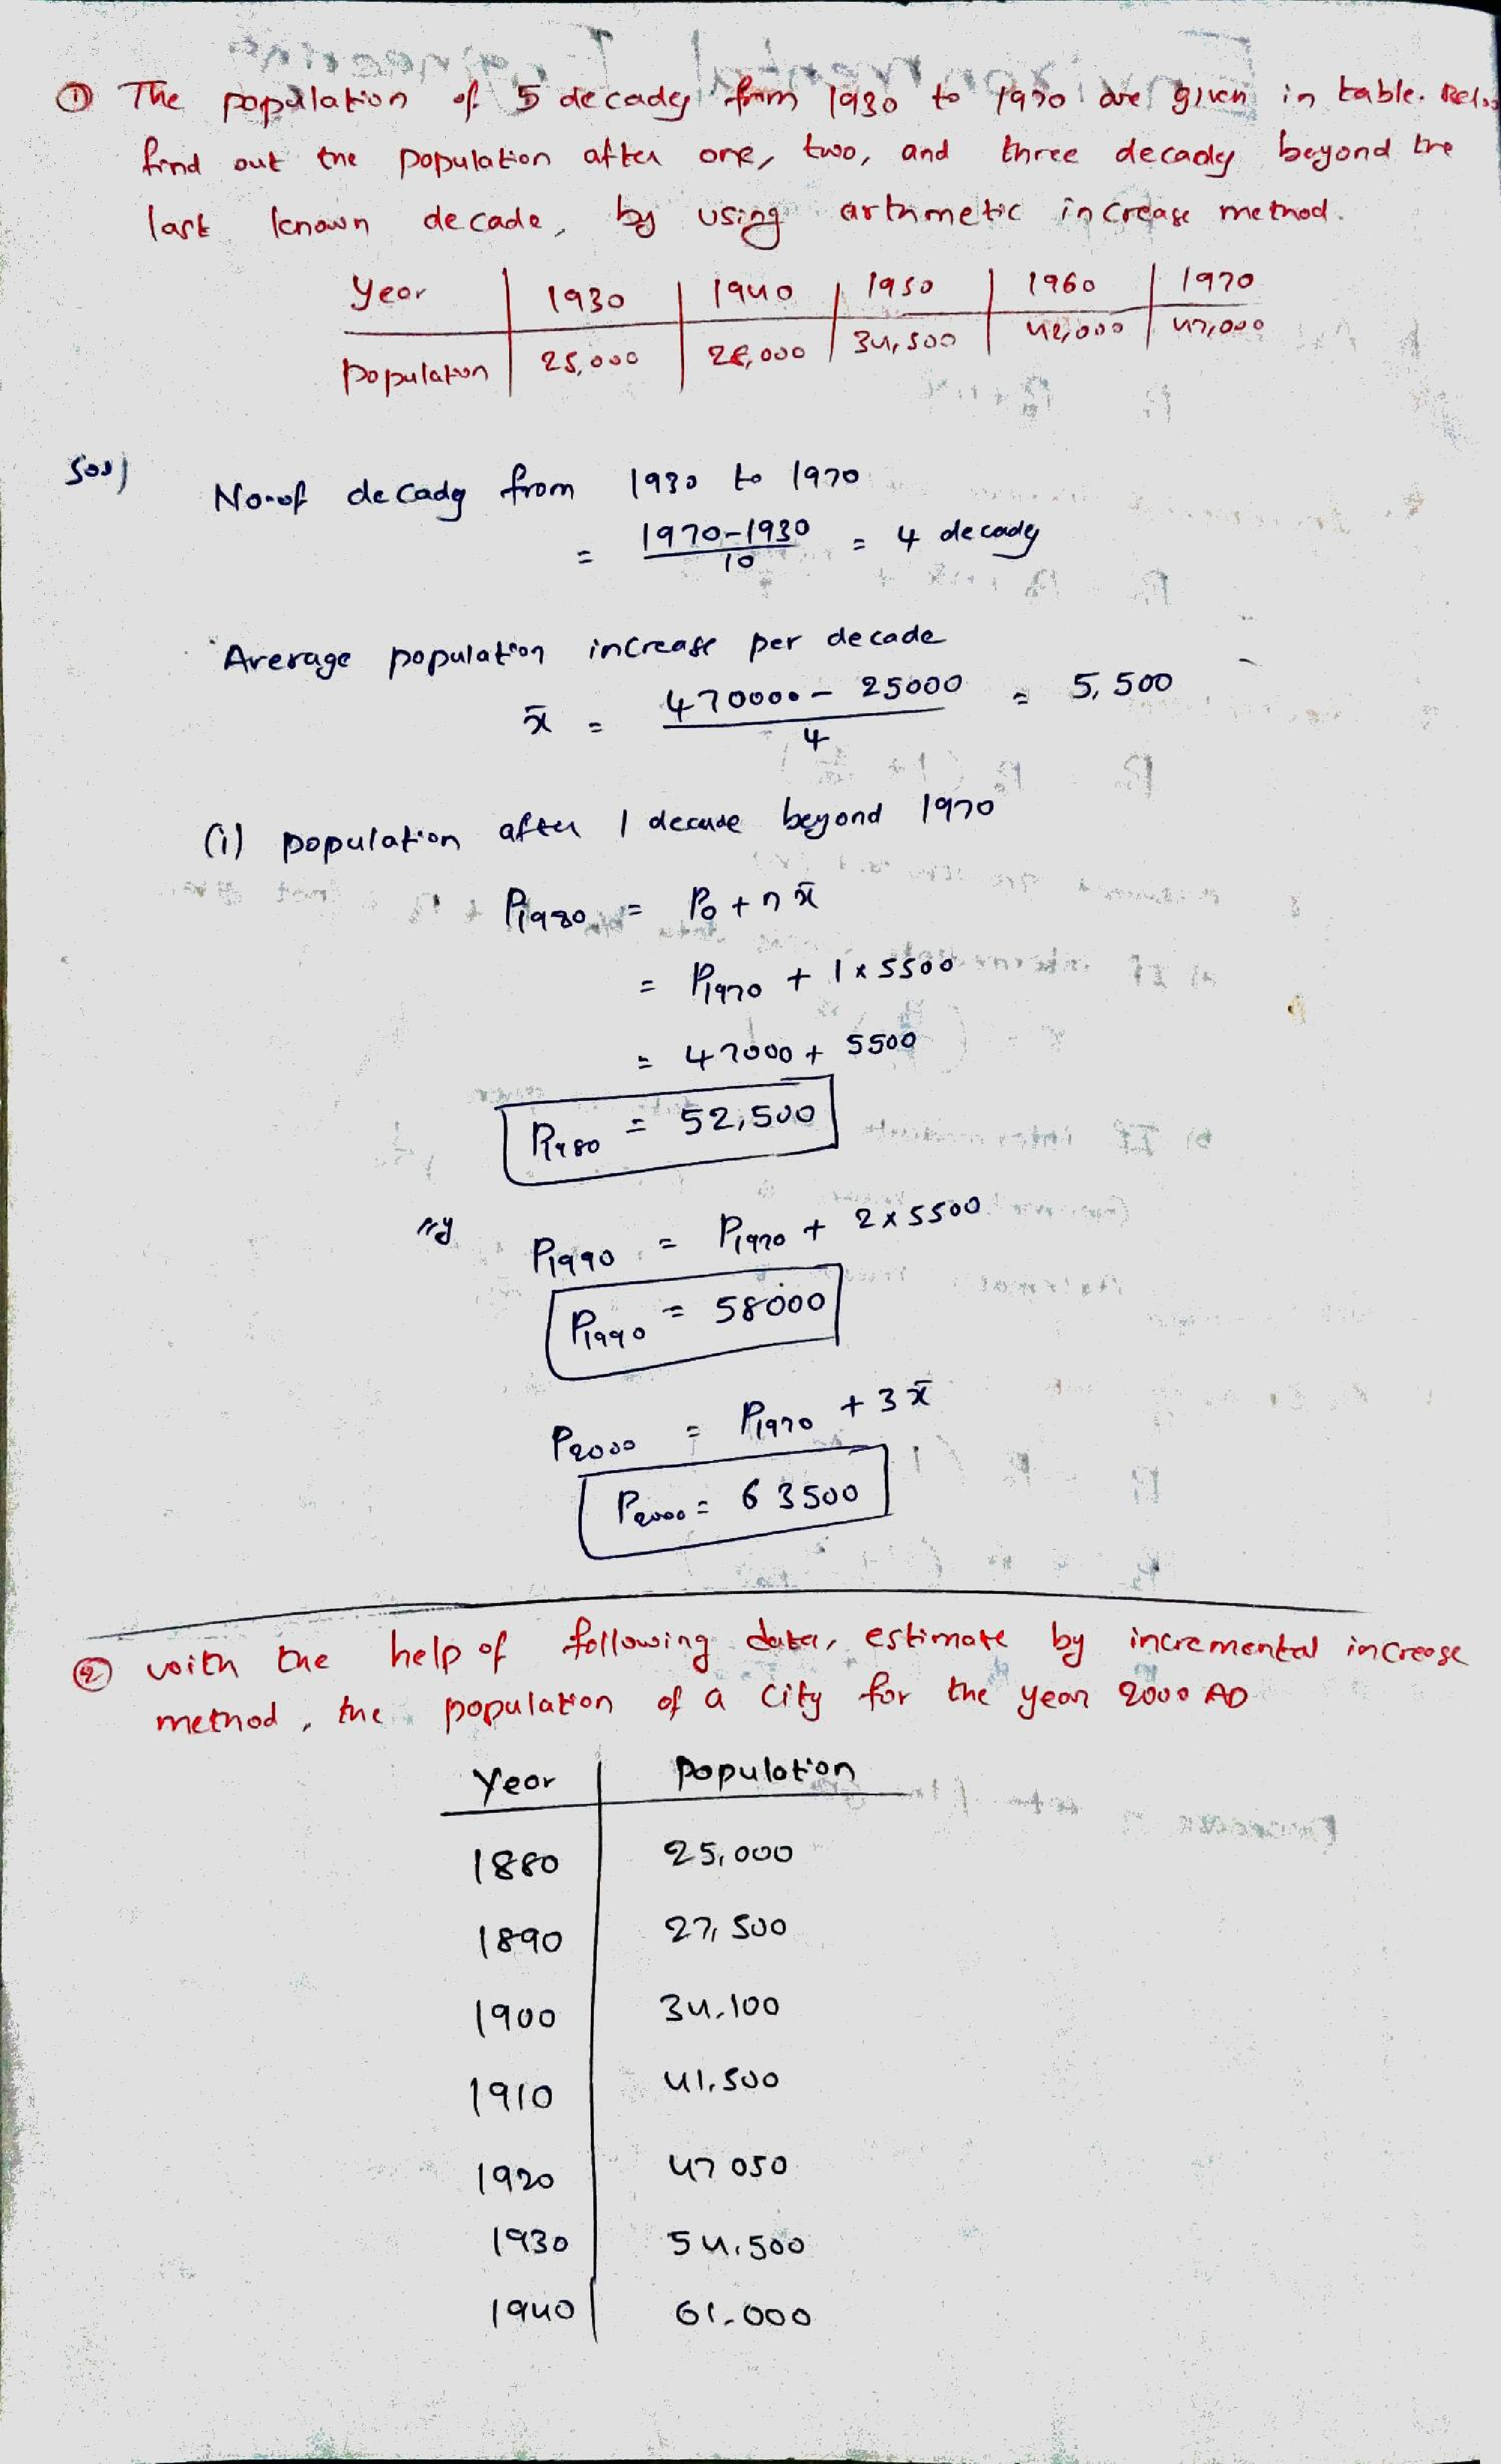 ① The population of 5 decades from 1930 to 1970 are given in table. Below
find out the population after one, two, and three decades beyond the
last known decade, by using arthmetic increase method.
Year 1930 1940 1950 1960 1970
population 25,000 28,000 34,500 42,000 47,000
Sol)
No.of decades from 1930 to 1970
= 1970-1930 / 10 = 4 decades
Average population increase per decade
x̄ = 470000 - 25000 / 4 = 5,500
(i) population after 1 decade beyond 1970
P1980 = P0 + n x̄
= P1970 + 1 x 5500
= 47000 + 5500
P1980 = 52,500
lly P1990 = P1970 + 2 x 5500
P1990 = 58000
P2000 = P1970 + 3 x̄
P2000 = 63500
② with the help of following data, estimate by incremental increase
method, the population of a city for the year 2000 AD
Year population
1880 25,000
1890 27,500
1900 34,100
1910 41,500
1920 47050
1930 54,500
1940 61,000